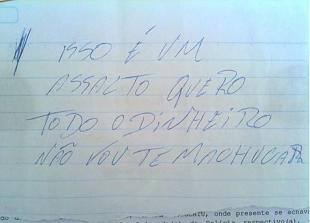 ISSO É UM
ASSALTO QUERO
TODO O DINHEIRO
NÃO VOU TE MACHUCAR
onde presente se achava
respectivo(a).